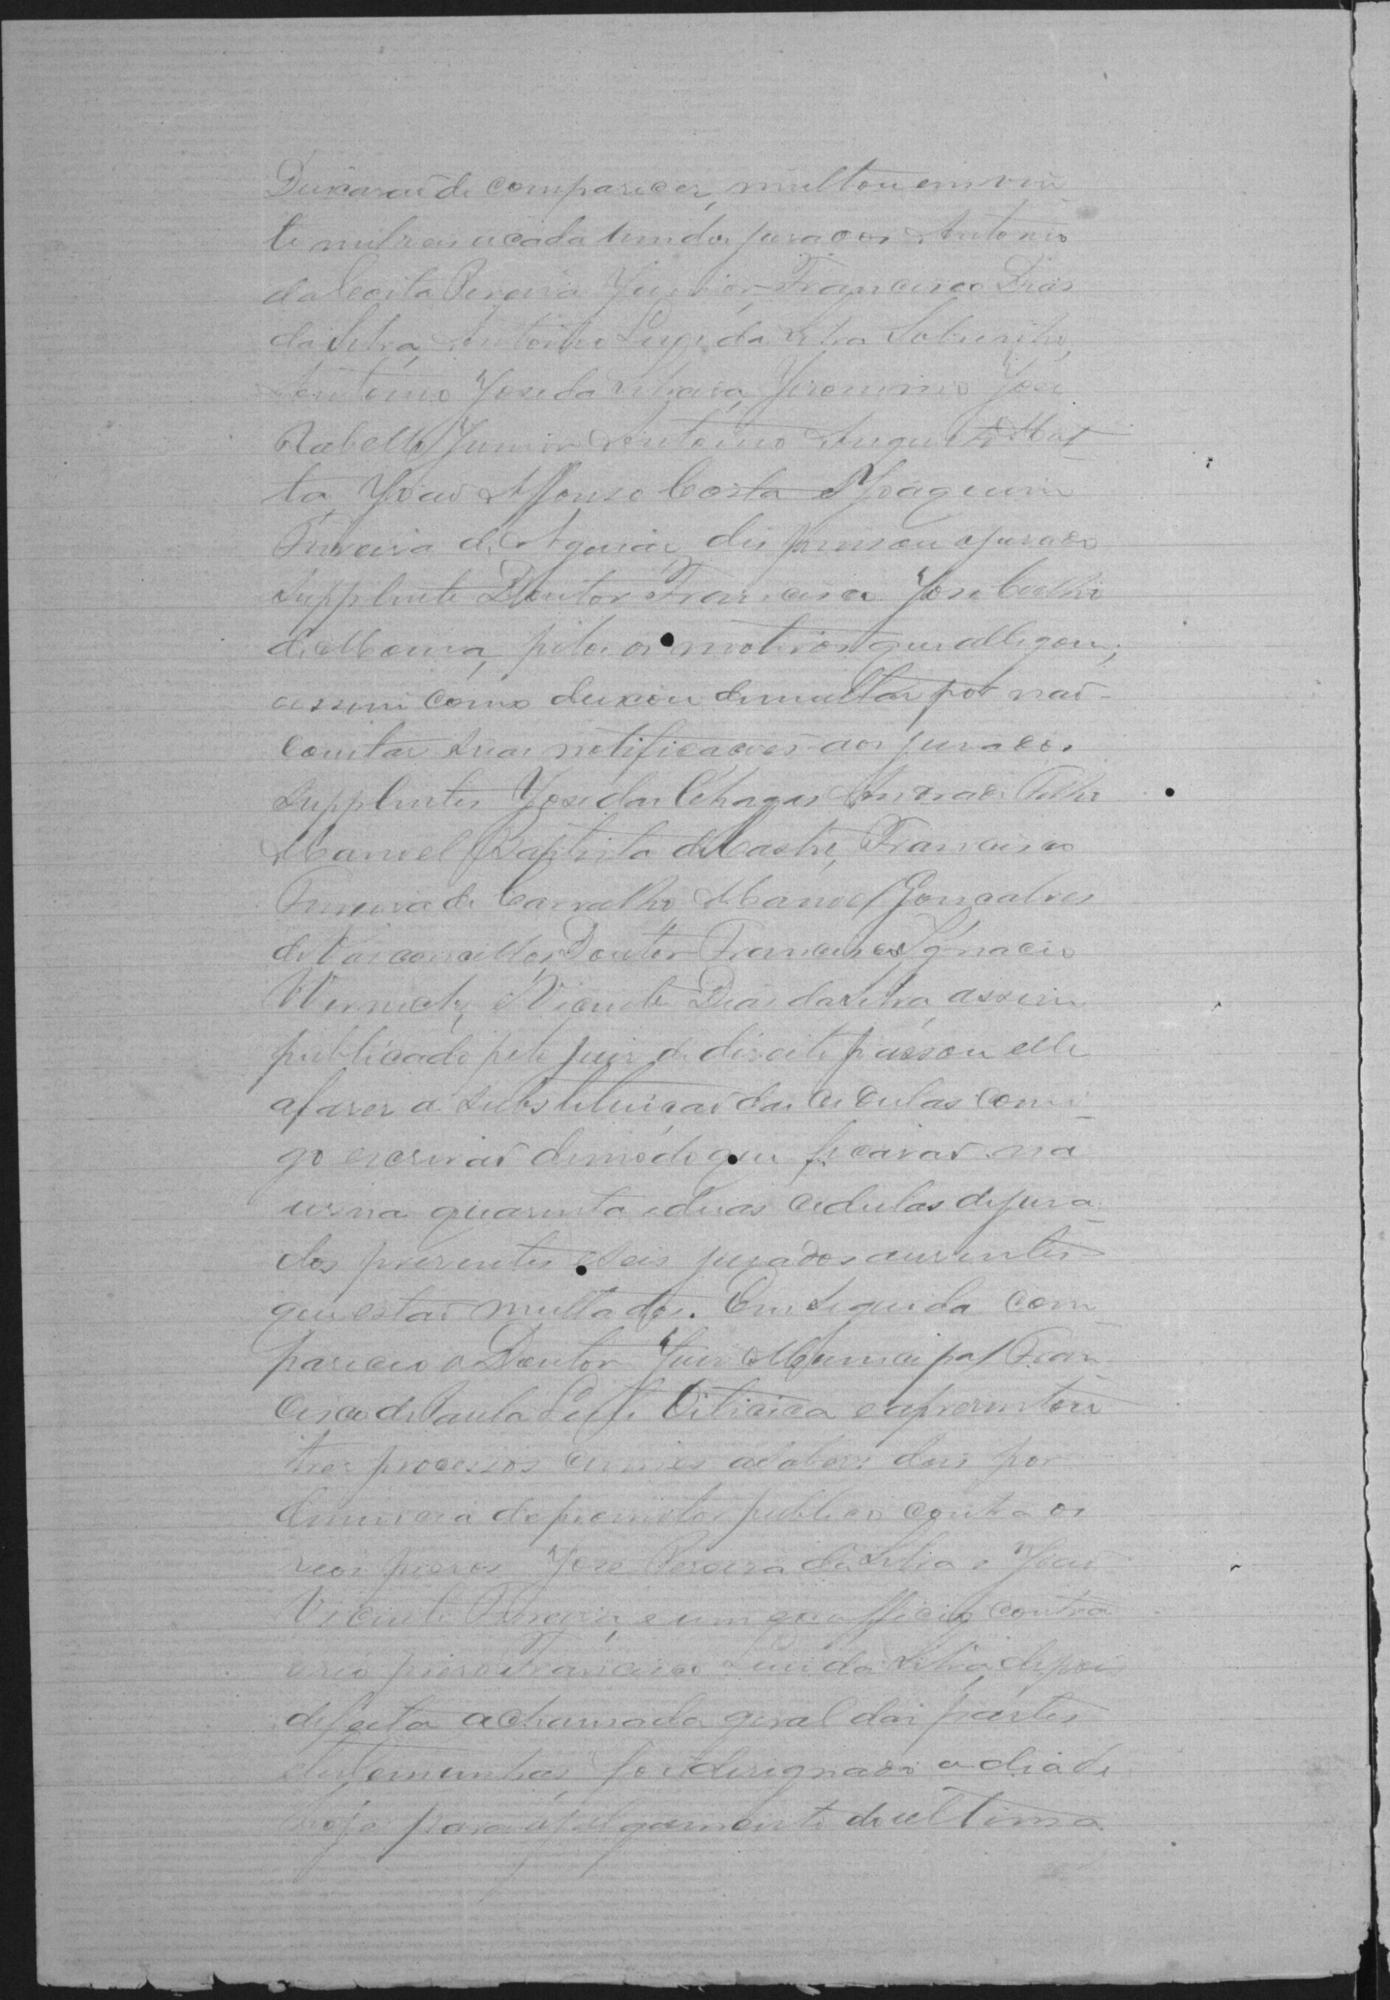 Deixaraõ de comparecer, multou em vin
te mil reis a cada um dos jurados Antonio
da Costa Pereira Junior, Francisco Dias
da Silva, Antonio Luis da Silva Sobrinho,
Antonio José da Silveira, Jeronimo José
Rabello Junior Antonio Augusto Mat
ta, Joaõ Affonso Costa e Joaquim
Ferreira de Aguiar, dispensou o jurado
Supplente Doutor Francisco José Coelho
de Moura, pelos os motivos que allegou;
assim como deixou de multar por naõ
constar suas notificações aos jurados
Supplentes José das Chagas Andrade Filho
Manoel Baptista de Castro, Francisco
Ferreira de Carvalho Manoel Gonçalves
de Vasconcellos, Doutor Francisco Ignacio
Werneck, e Vicente Dias da Silva, assim
publicado pelo juiz de direito passou elle
a fazer a substituiçaõ das cedulas comi
go escrivaõ de modo que ficaraõ na
urna quarenta e duas cedulas de jura
dos presentes e seis jurados ausentes
que estaõ multados. Em seguida com
pareceo o Doutor Juiz Municipal Fran
cisco de Paula Leite Oiticica e apresentou
tres processos crimes a saber: dois por
denuncia do promotor publico contra os
reos presos José Pereira da Silva e Joaõ
Vicente Ferreira, e um ex officio contra
o reo preso Francisco Luis da Silva, depois
de feita a chamada geral das partes
e testemunhas, foi designado o dia de
hoje para o julgamento do ultimo